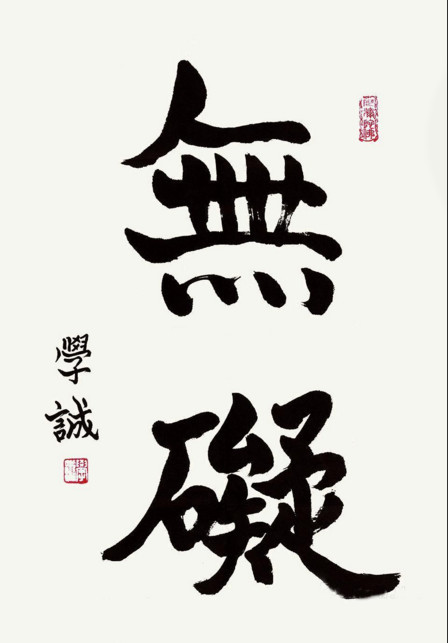 無礙
學誠